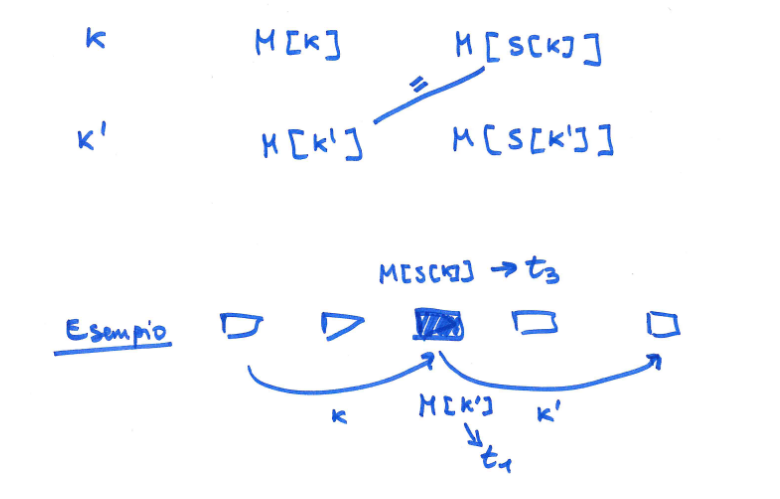 K M[K] M[S[K]]
=
K' M[K'] M[S[K']]
M[S[K]] → t₃
Esempio
K M[K'] K'
t₁